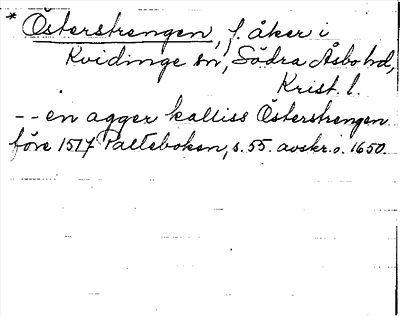 * Östersstrengen, f. åker i
Kvidinge sn, Södra Åsbo hd,
Krist. l.
-- en agger kalliss Östersstrengen
före 1517 Palteboken, s. 55. avskr. o. 1650.